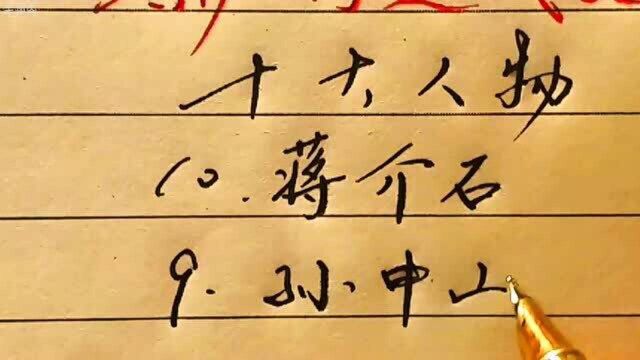 十大人物
10.蒋介石
9.孙中山